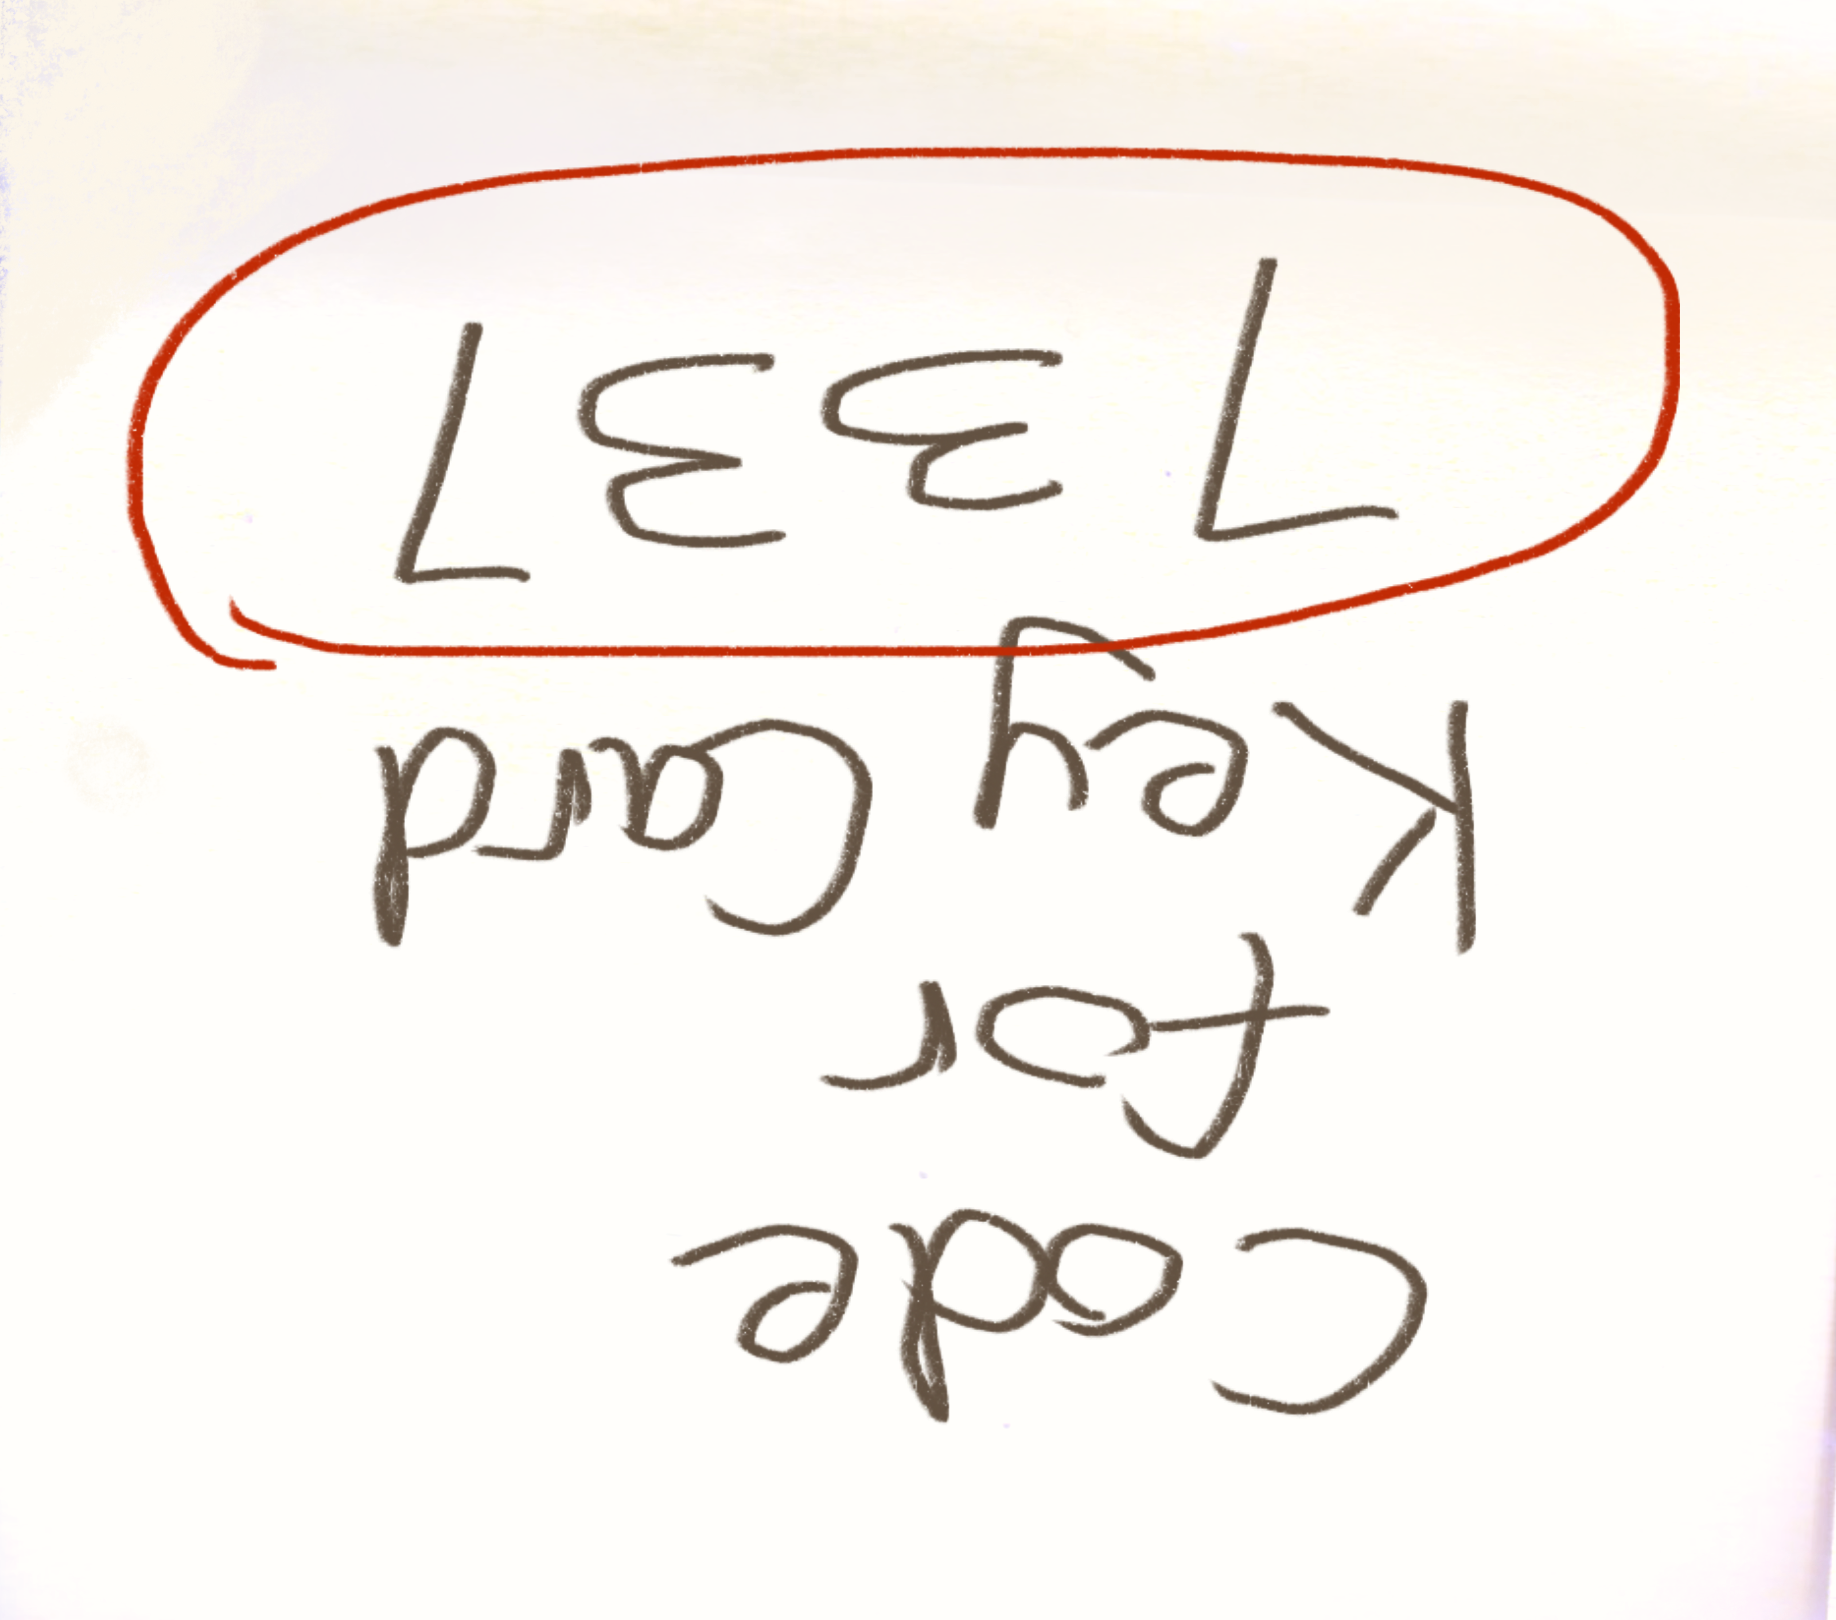 Code
for
Key Card
7337